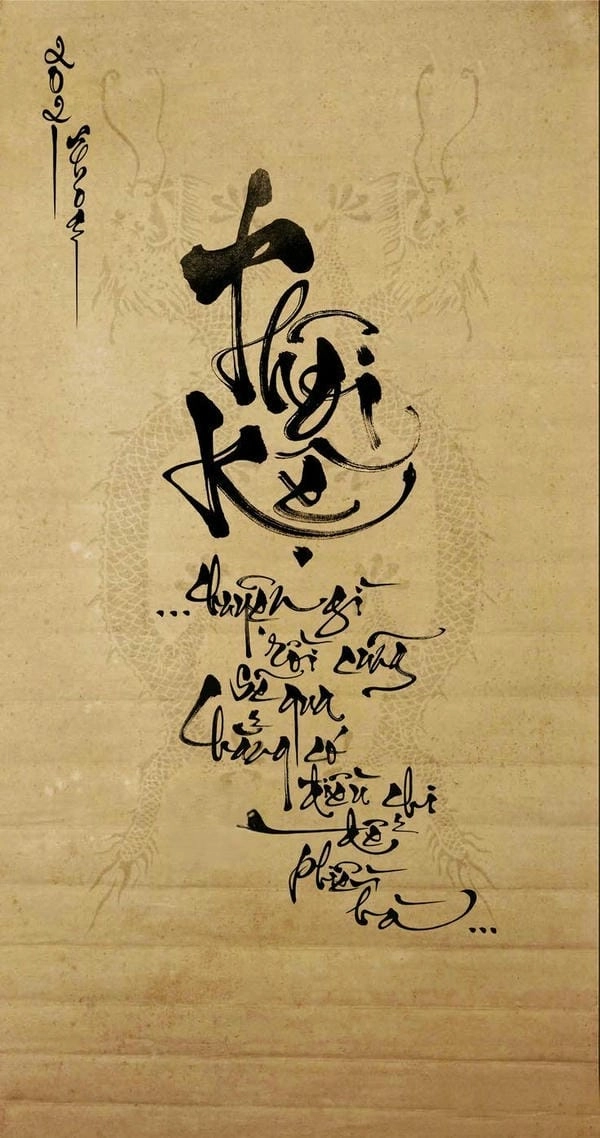 2021
Thôi
Kệ
...chuyện gì
rồi cũng
sẽ qua
chẳng có
điều chi
để
phiền
hà...